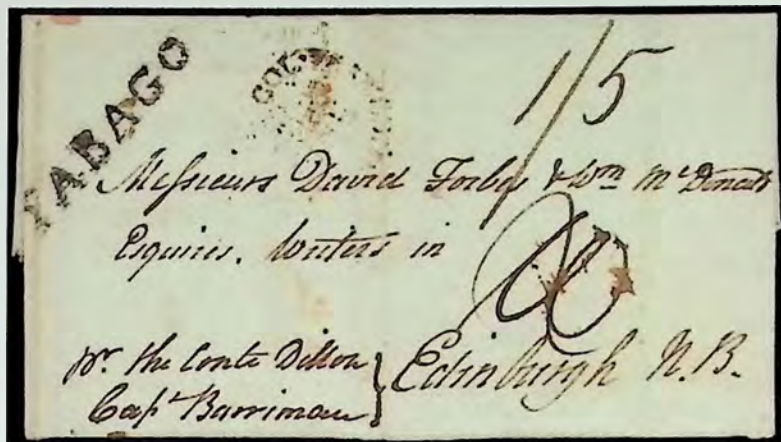 TABAGO
1/5
Messieurs David Forbes & Wm McDonald
Esquires. Writers in
Edinburgh N.B.
pr. the Conte Dillon
Capt Barriman